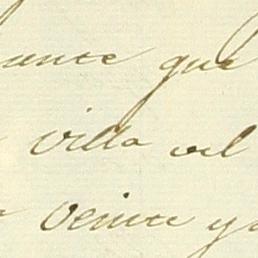 que
villa del
veinte y